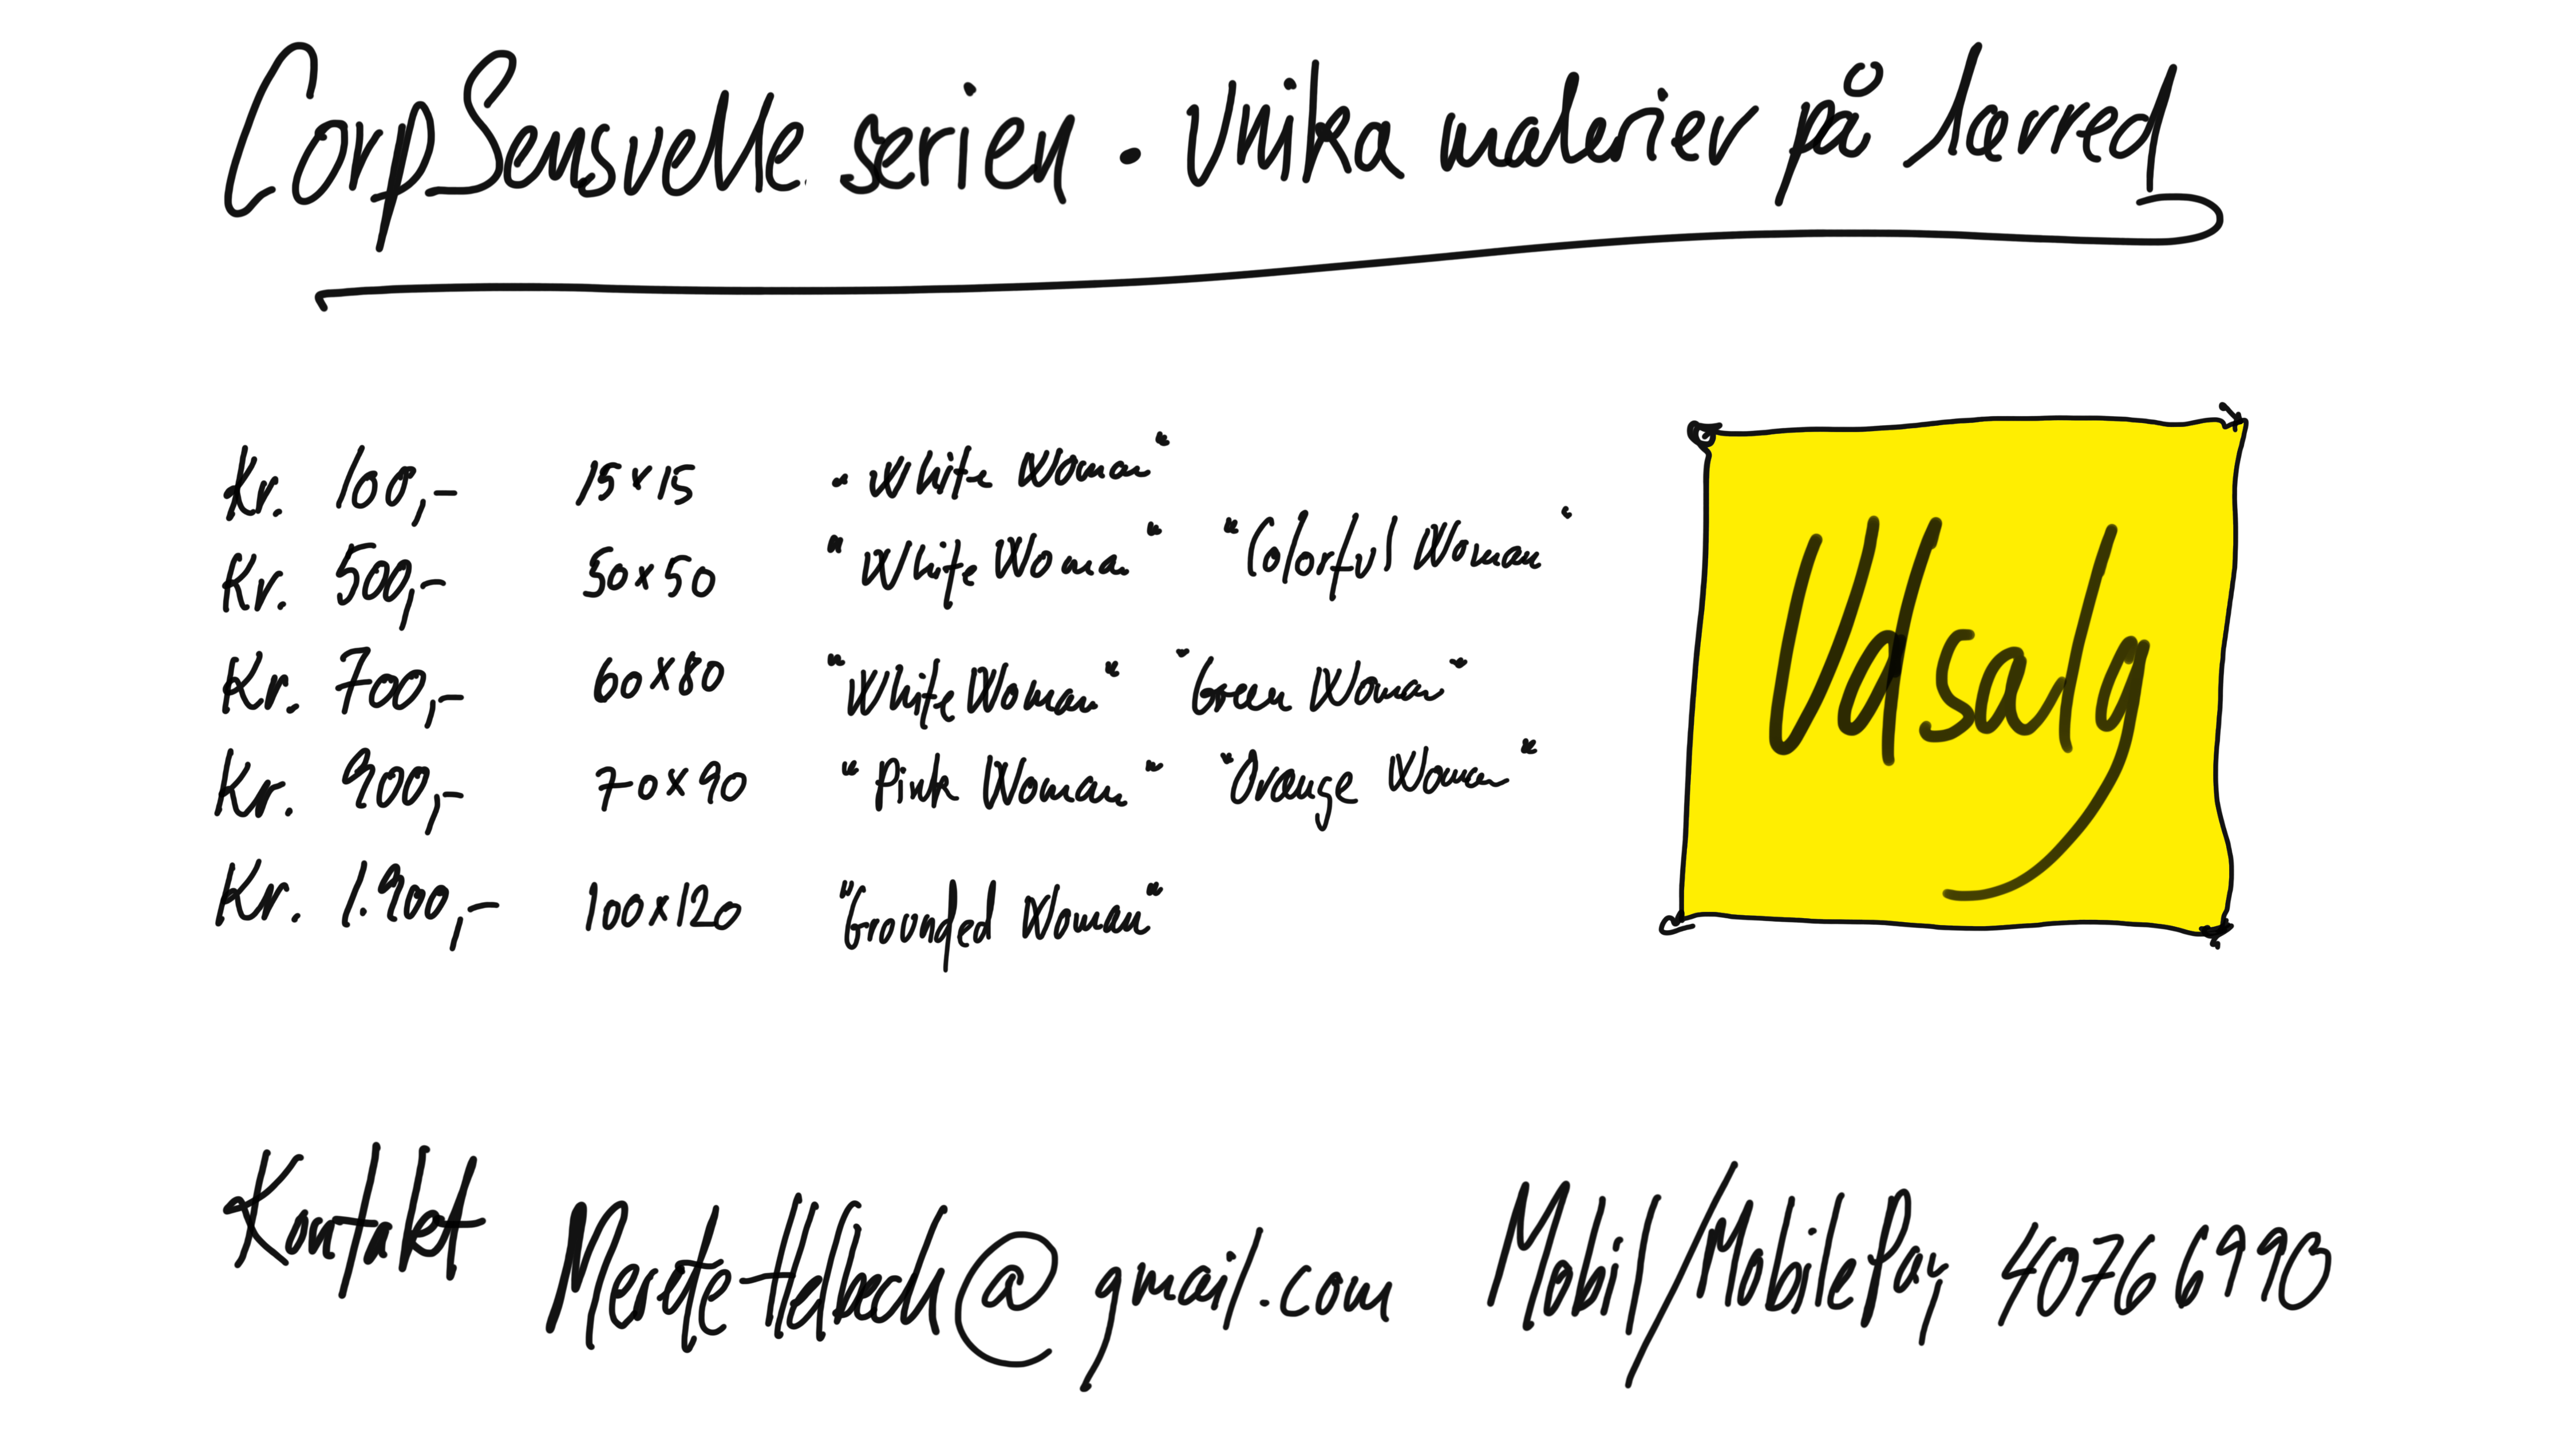 CorpSensuelle serien. Unika malerier på lærred
Kr. 100,- 15x15 "White Woman"
Kr. 500,- 50x50 "White Woman" "Colorful Woman"
Kr. 700,- 60x80 "White Woman" "Green Woman"
Kr. 900,- 70x90 "Pink Woman" "Orange Woman"
Kr. 1.900,- 100x120 "Grounded Woman"
Udsalg
Kontakt MereteHelbech@gmail.com Mobil/MobilePay 40766990